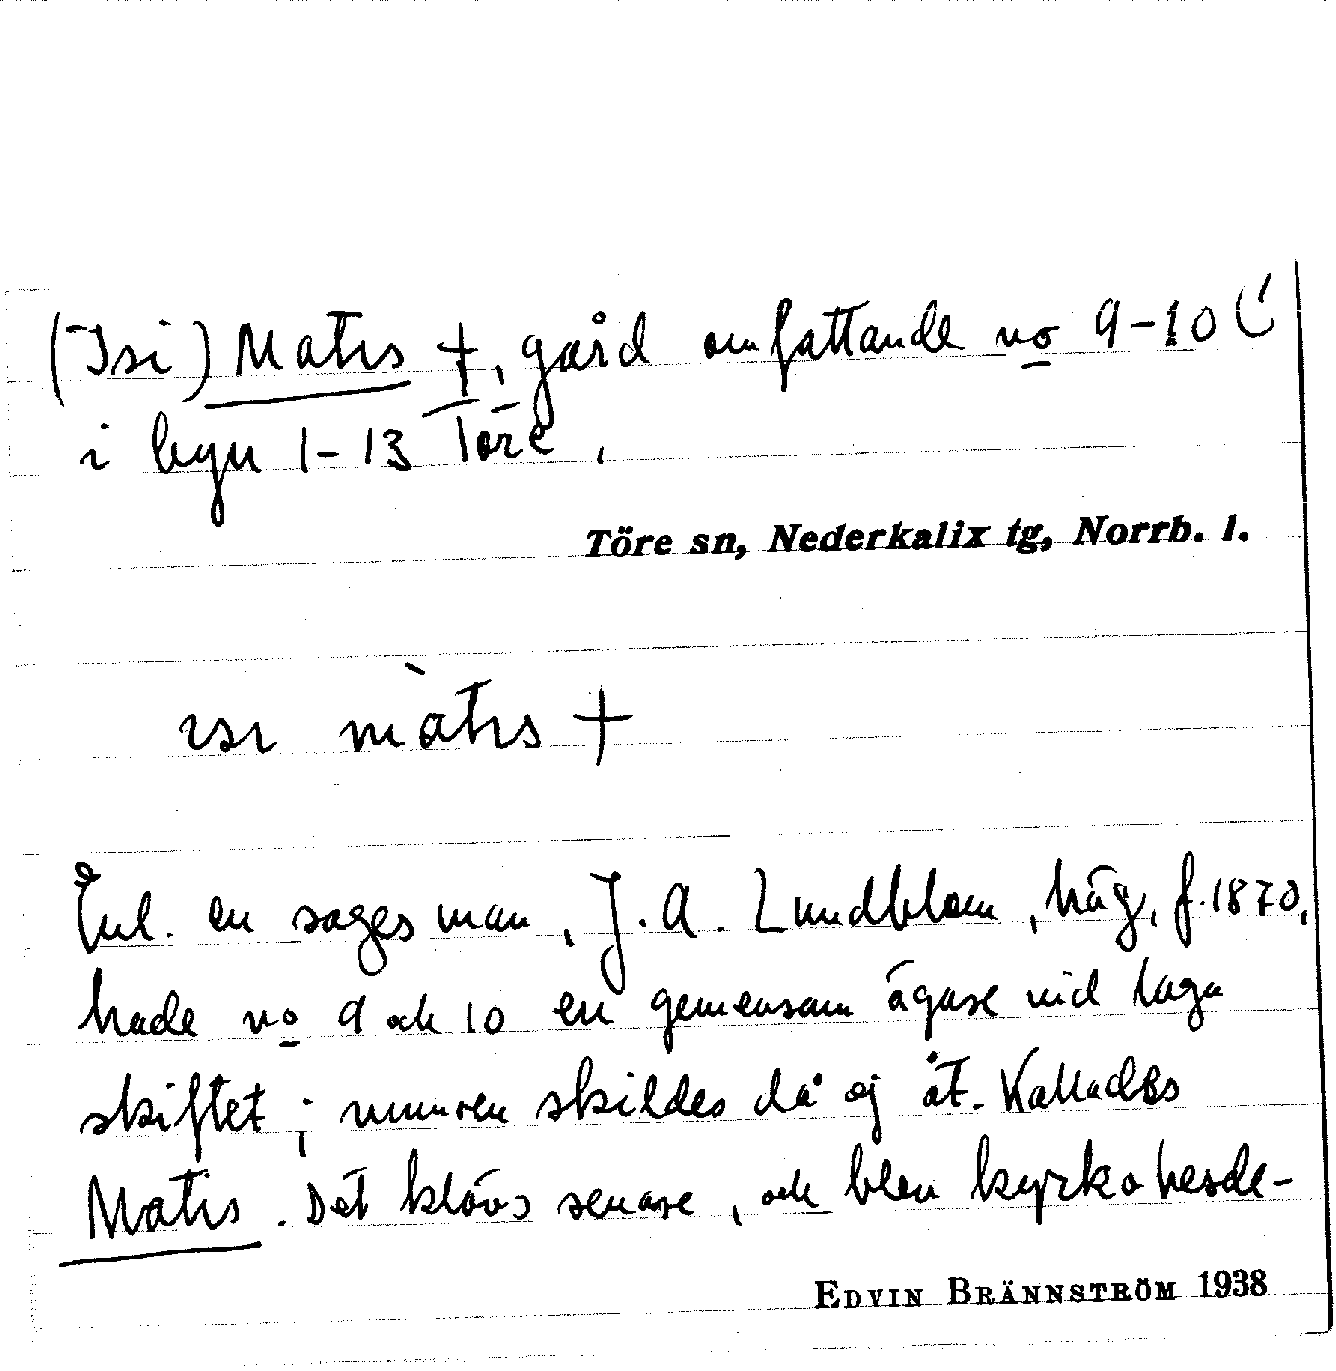 (Isi) Matis †, gård omfattande no 9-10
i byn 1-13 Töre.
Töre sn, Nederkalix tg, Norrb. l.
ısı màtıs †
Enl. en sagesman, J. A. Lundblom, häg, f. 1870,
hade no 9 och 10 en gemensam ägare vid laga
skiftet; numren skildes då ej åt. Kallades
Matis. Det klövs senare, och blev kyrkoherde-
EDVIN BRÄNNSTRÖM 1938